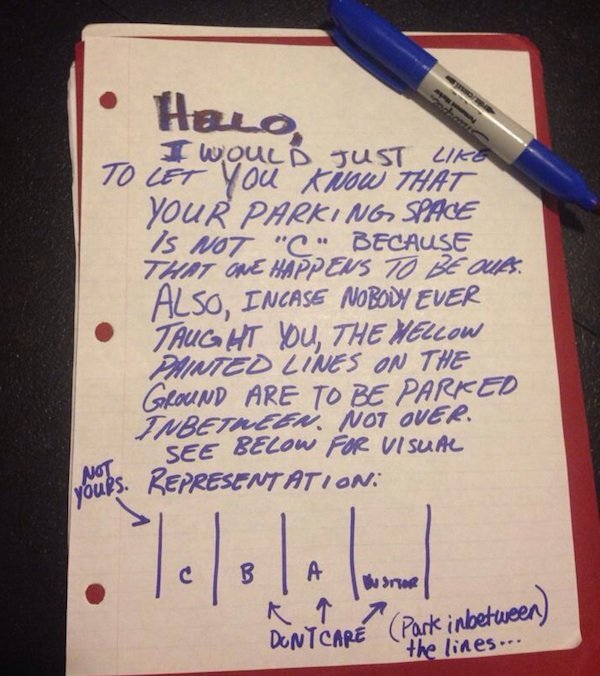 HELLO,
I WOULD JUST LIKE
TO LET YOU KNOW THAT
YOUR PARKING SPACE
IS NOT "C" BECAUSE
THAT ONE HAPPENS TO BE OURS.
ALSO, INCASE NOBODY EVER
TAUGHT YOU, THE YELLOW
PAINTED LINES ON THE
GROUND ARE TO BE PARKED
INBETWEEN. NOT OVER.
SEE BELOW FOR VISUAL
REPRESENTATION:
NOT
YOURS.
C B A VISITOR
DONT CARE
(Park inbetween)
the lines...
Sharpie